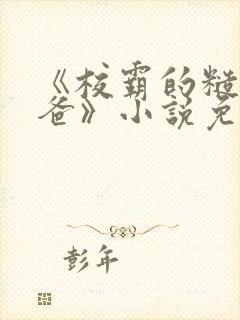 《校霸的糙
爸》小说免
彭年